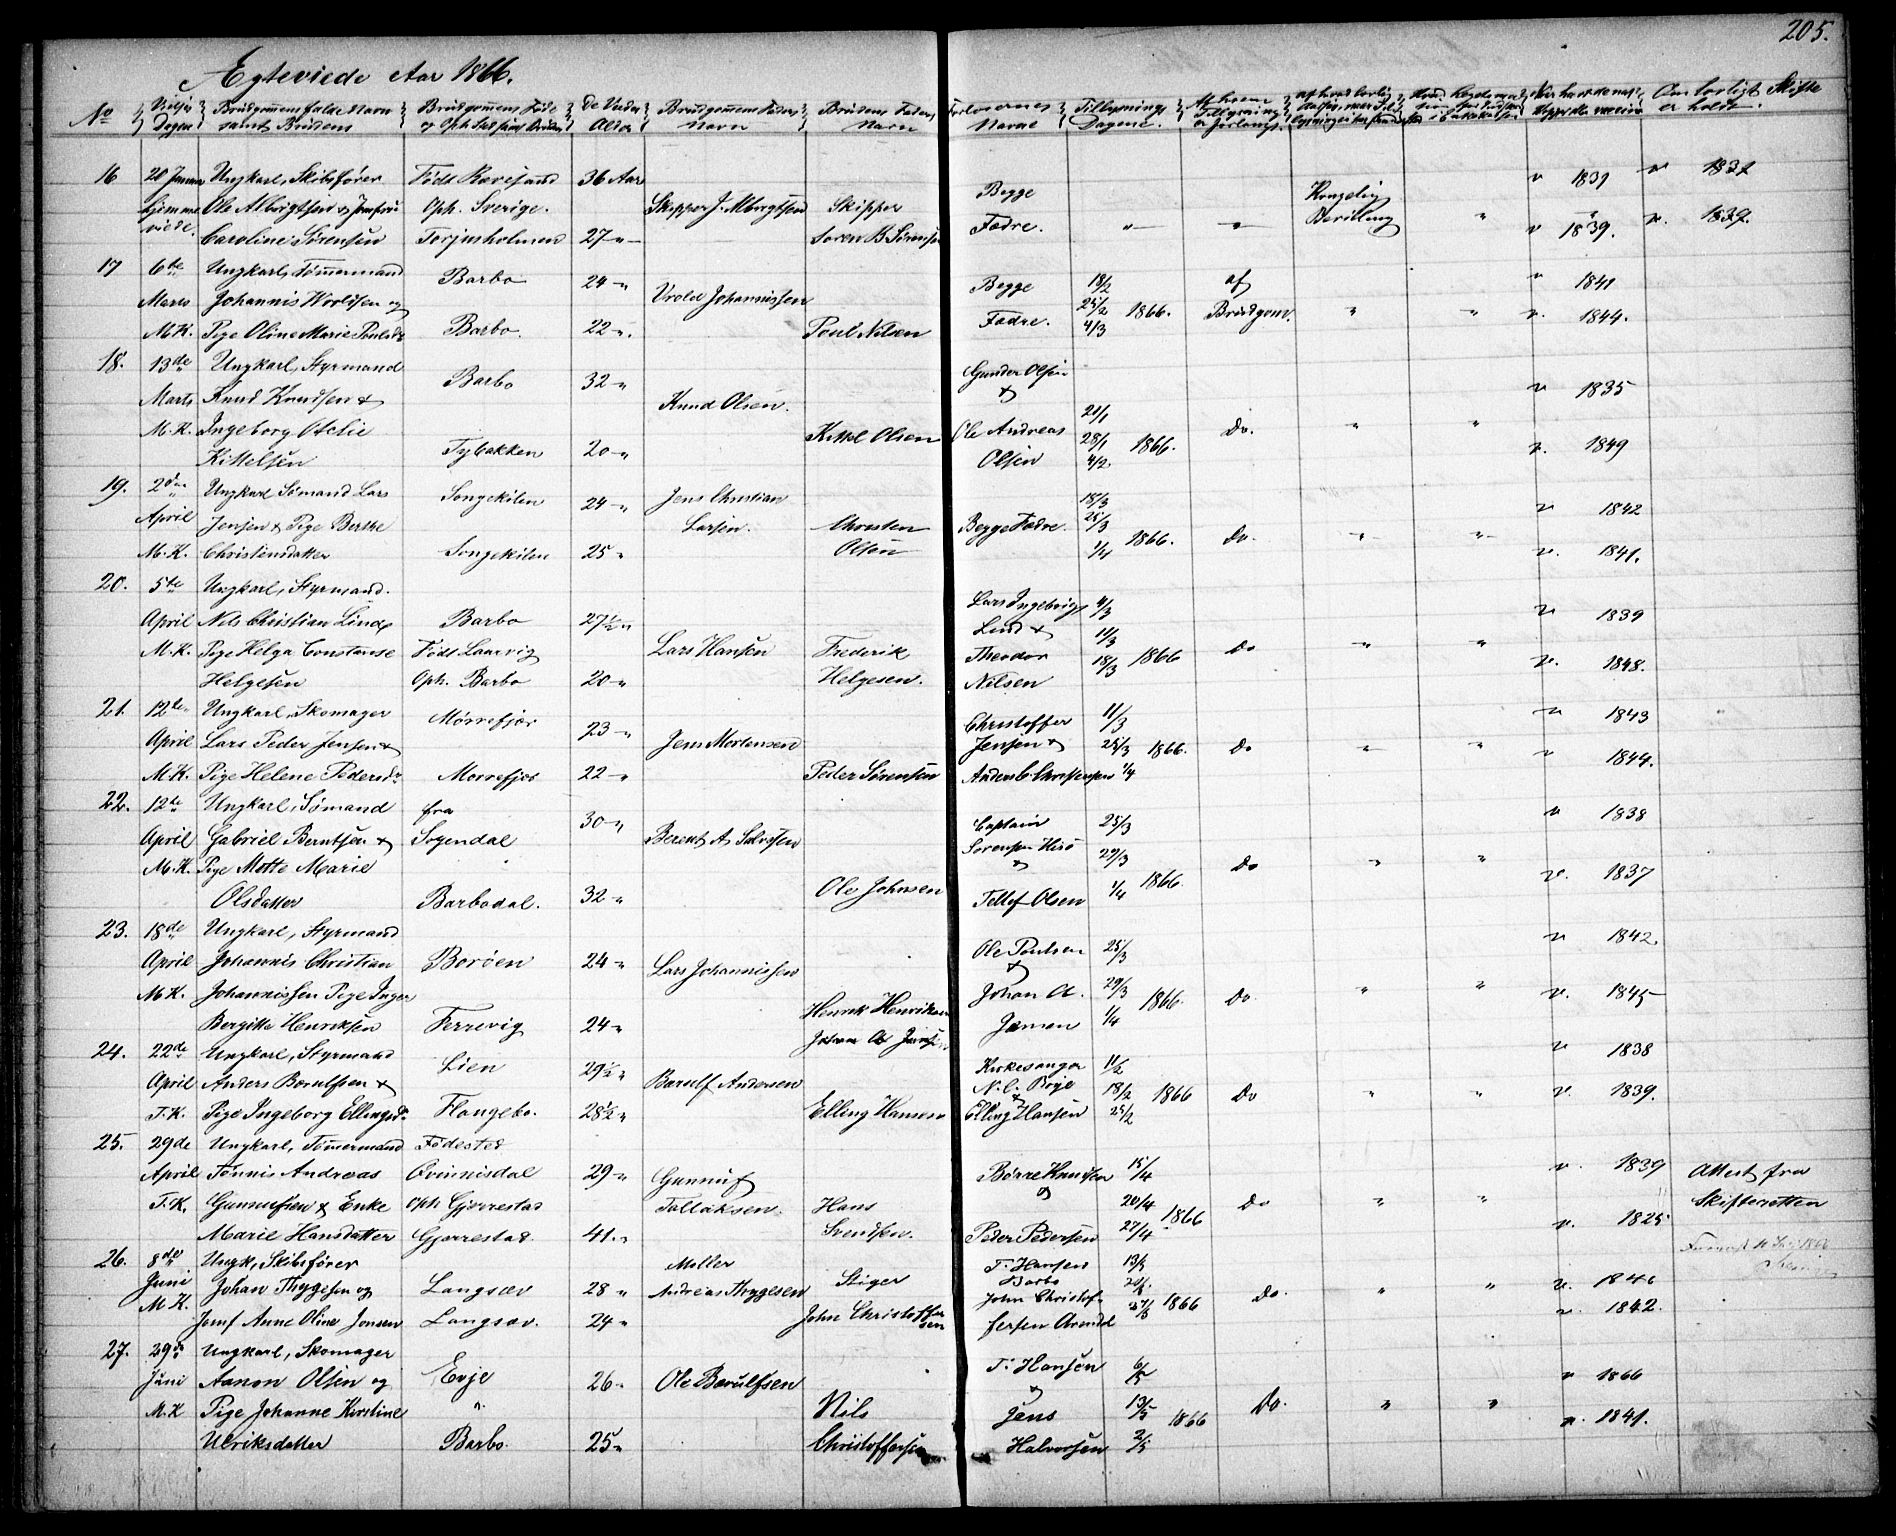 205.
Egteviede Aar 1866.
No | Vielses Dagen | Brudgomens fulde Navn samt Brudens | Brudgomens Føde og Oph. Sted samt Brudens | de Viedes Alder | Brudgomens Faders Navn | Brudens Faders Navn | Forlovernes Navne | Tillysnings Dagene | Af hvem Tillysning er forlangt | Om lovligt Skifte er holdt
16 | 20 Januar | Ungkarl, Skibsfører | Født Rævesand | 36 Aar | Begge | Kongelig | v 1839 | v 1831
hjemme | Ole Albrigtsen & Jomfru | Oph. Sverige. | Skipper J. Albrigtsen | Skipper | Fadre. | " | " | Bevilling | "
viede. | Caroline Sørensen | Torjusholmen | 27 " | Soren B Sørensen | v 1839. | v. 1839.
17 | 6te | Ungkarl, Tømermand | Barbo | 24 " | Begge | 18/2 | af | v 1841
Marts | Johannis Wroldsen og | Vrold Johannissen | 25/2 1866. | Brudgom. | " | "
M.K. | Pige Oline Marie Poulsdr | Barbo. | 22 " | Poul Nilsen | Fadre. | 4/3 | v. 1844.
18. | 13de | Ungkarl, Styrmand | Barbo | 32 " | Gunder Olsen | v 1835
Marts | Knud Knudsen & | Knud Olsen. | &
M.K. | Ingeborg Otelie | Kittel Olsen | Ole Andreas | 21/1 28/1 1866. | Do. | " | "
Kittelsen | Tybakken | 20 " | Olsen | 4/2 | v. 1849
19. | 2den | Ungkarl Sømand Lars | Songekilen | 24 " | Jens Christian | 18/3 | v 1842
April | Jensen & Pige Berthe | Larsen. | Christen | Begge Fadre. | 25/3 1866. | Do. | " | "
M.K. | Christensdatter | Songekilen | 25 " | Olsen | 1/4 | v. 1841.
20. | 5te | Ungkarl, Styrmand.
April | Nils Christian Lind & | Barbo | 27½ " | Lars Ingebrigt | 4/3 | v 1839
M.K. | Pige Helga Constanse | Født Laurvig | Lars Hansen | Frederik | Lind & Theodor | 11/3 18/3 1866 | Do | " | "
Helgesen | Oph. Barbo | 20 " | Helgesen. | Nilsen | v. 1848.
21. | 12te | Ungkarl, Skomager | Mørrefjær | 23 " | Christoffer | 11/3 | v 1843
April | Lars Peder Jensen & | Jens Mortensen | Jensen & | 25/3 1866. | Do | " | "
M.K. | Pige Helene Pedersdr | Morrefjær | 22 " | Peder Sørensen | Anders C. Christensen | 1/4 | v 1844.
22. | 12te | Ungkarl, Sømand | fra | 30 " | Captain | 25/3 | v 1838
April | Gabriel Berntsen & | Sogendal | Berent A Salvesen | Sorensen Hisø | 29/3
M.K. | Pige Mette Marie | & | 1866. | Do | " | "
Olsdatter | Barbodal. | 32 " | Ole Johnsen | Tellef Olsen | 1/4 | v. 1837
23. | 18de | Ungkarl, Styrmand | Ole Poulsen | 25/3 | v 1842.
April | Johannis Christian | Borøen | 24 " | Lars Johannissen | &
M.K. | Johannissen Pige Inger | Henrik Henriksen | Johan A. | 29/3 1866. | Do. | " | "
Bergitte Henriksen | Ferrevig | 24 " | Jensen | 1/4 | v. 1845
24. | 22de | Ungkarl, Styrmand | Lien | 29½ " | Kirkesanger | 11/2 | v 1838
April | Anders Børulfsen & | Børulf Andersen | N. C. Boye | 18/2 1866 | Do | " | "
T.K. | Pige Ingeborg Ellingsdr | Flangebo. | 28½ " | Elling Hansen | & Elling Hansen | 25/2 | v. 1839.
25. | 29de | Ungkarl, Tømermand | Fødested
April | Tønnis Andreas | Qvinnisdal | 29 " | Gunnuf | Børre Knudsen | 15/4 | v. 1839 | Attest fra
T.K. | Gunnufsen & Enke | Oph Gjerrestad | Tollaksen. | Hans | & | 20/4 1866 | Do | " | " | Skifteretten
Marie Hansdatter | Gjerrestad. | 41 " | Svendsen. | Peder Pedersen | 27/4 | v. 1825
26. | 8de | Ungk, Skibsfører | Møller | T. Hansen | 13/5
Juni | Johan Thygesen og | Langsæv | 28 " | Andreas Thygesen | Stiger | Barbo | v. 1846
M K. | Jomf Anne Oline Jensen | Langsæv. | 24 " | John Christoffersen | John Christoffersen Arendal | 1866 | Do. | " | " | v. 1842.
27. | 29de | Ungkarl, Skomager | T. Hansen | 6/5
Juni | Aanon Olsen og | Evje | 26 " | Ole Børulfsen | & | v 1866
M.K | Pige Johanne Kirstine | " | Nils | Jens | 13/5 1866 | Do. | " | " | v. 1841.
Ulriksdatter | Barbo. | 25 " | Christoffersen | Halvorsen | 2/5